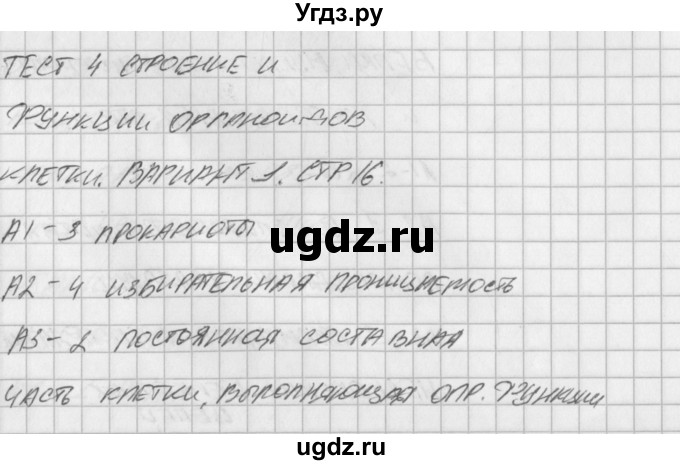 Угдз.ру
ТЕСТ 4 СТРОЕНИЕ И
ФУНКЦИИ ОРГАНОИДОВ
КЛЕТКИ. ВАРИАНТ 1. СТР 16.
А1-3 ПРОКАРИОТЫ
Угдз.ру
ugdz.ru
А2-4 ИЗБИРАТЕЛЬНАЯ ПРОНИЦАЕМОСТЬ
А3-2 ПОСТОЯННАЯ СОСТАВНАЯ
ЧАСТЬ КЛЕТКИ, ВЫПОЛНЯЮЩАЯ ОПР. ФУНКЦИИ
ugdz.ru